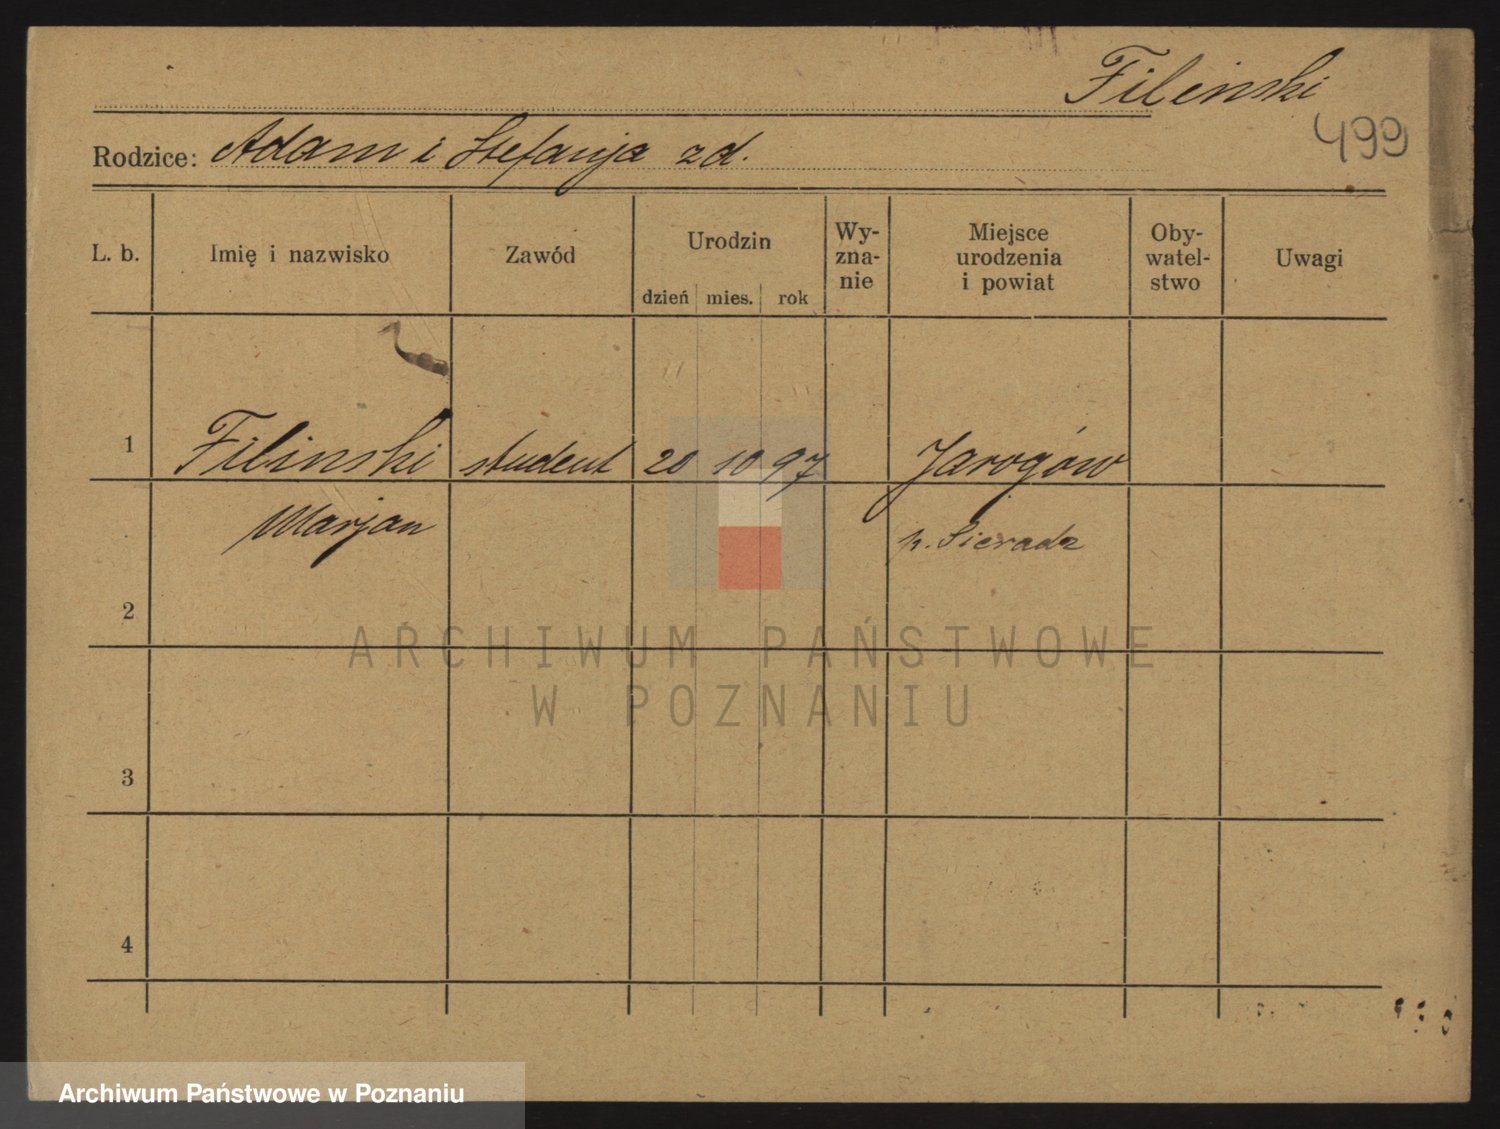 Filinski
499
Rodzice: Adam i Stefanja zd.
L. b. Imię i nazwisko Zawód Urodzin dzień mies. rok Wy-zna-nie Miejsce urodzenia i powiat Oby-watel-stwo Uwagi
1 Filinski student 20 10 97 Jarogów
Marjan p. Sieradz
2
3
4
ARCHIWUM PAŃSTWOWE
W POZNANIU
Archiwum Państwowe w Poznaniu